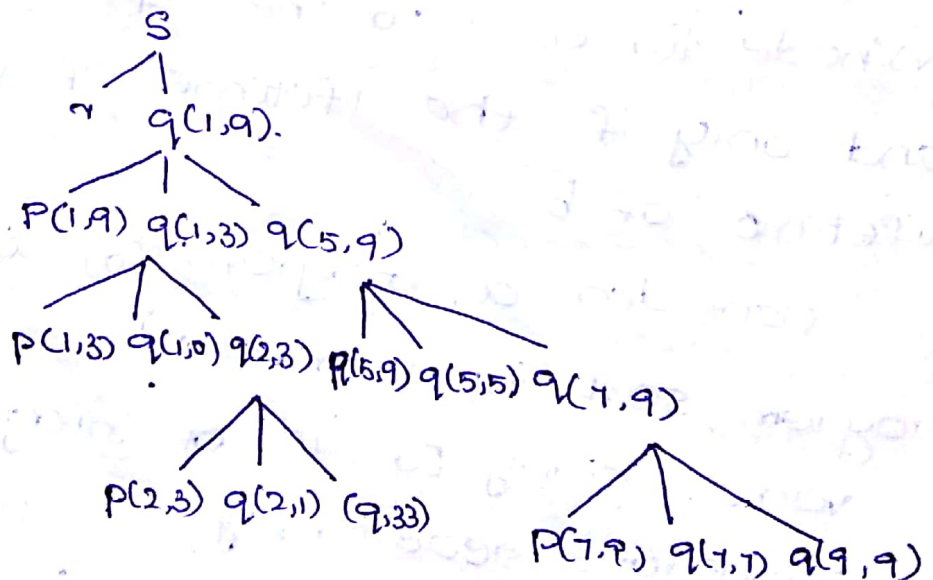 S
r q(1,9).
P(1,9) q(1,3) q(5,9)
p(1,3) q(1,0) q(2,3) p(5,9) q(5,5) q(7,9)
p(2,3) q(2,1) (q,33)
P(7,9) q(7,7) q(9,9)